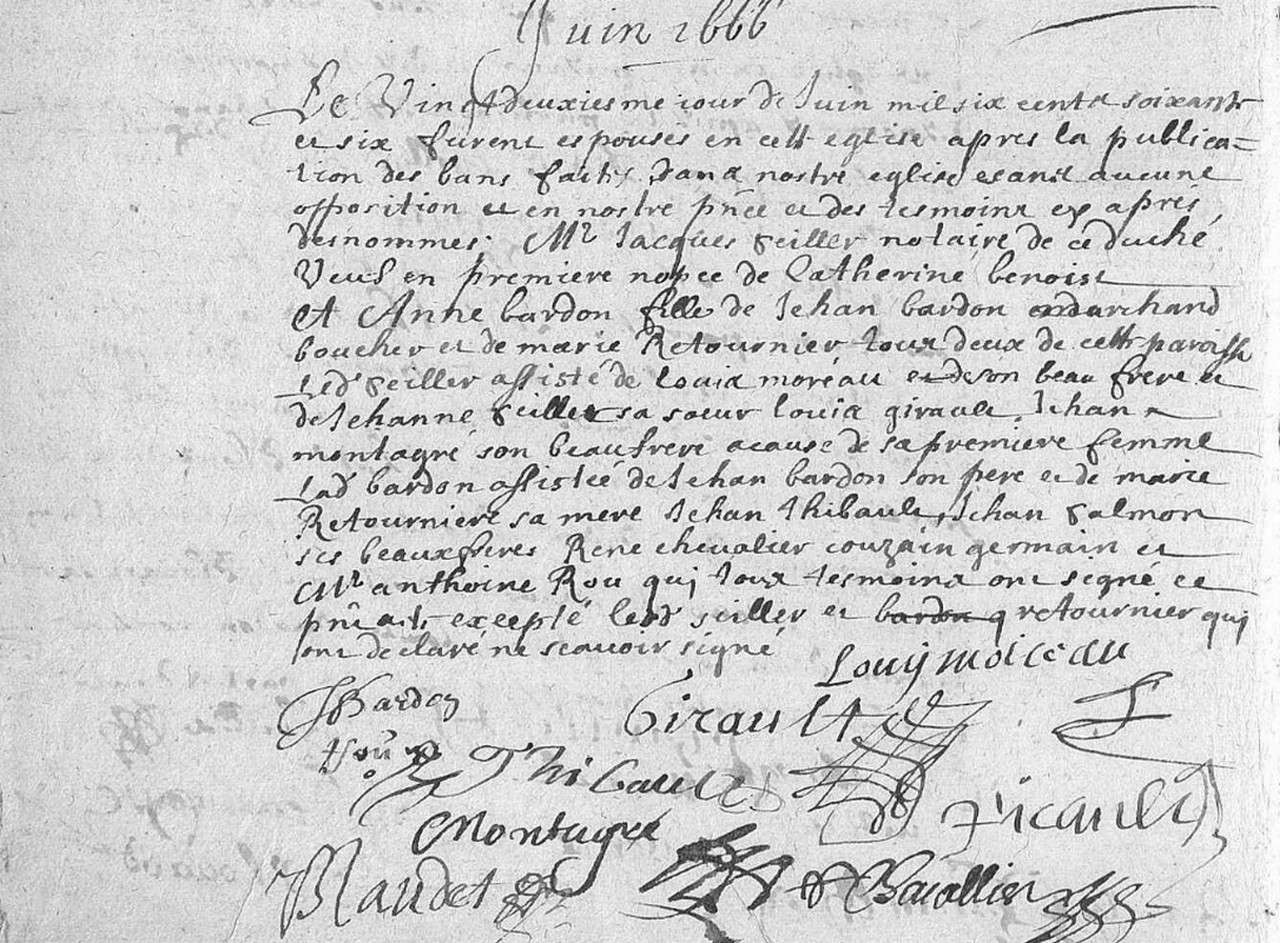 Juin 1666
Le Vingt deuxiesme iour de Juin mil six cents soixante
et six furent espousés en cette eglise apres la publica=
tion des bans faits dans nostre eglise et sans aucune
opposition et en nostre pñce et des tesmoins cy aprés
desnommés. Mr Jacques Seiller notaire de ce duché
Veuf en premiere nopce de Catherine benoist
et Anne bardon fille de Jehan bardon marchand
boucher et de marie Retournier tous deux de cette paroisse
Led seiller assisté de Louis moreau et de son beau frere et
de Jehanne Seiller sa soeur Louis girault Jehan
montagré son beaufrere a cause de sa premiere femme
Lad bardon assistée de Jehan bardon son pere et de marie
Retourniere sa mere Jehan thibault Jehan Salmon
ses beauxfreres Rene chevalier couzain germain et
Mr anthoine Rou qui tous tesmoins ont segné ce
pñt acte excepté lesd seiller et bardon retournier qui
ont declaré ne scauoir signé
Louy moiceau
JBardon
Girault
Thibault
Picault
Montagré
Blaudet